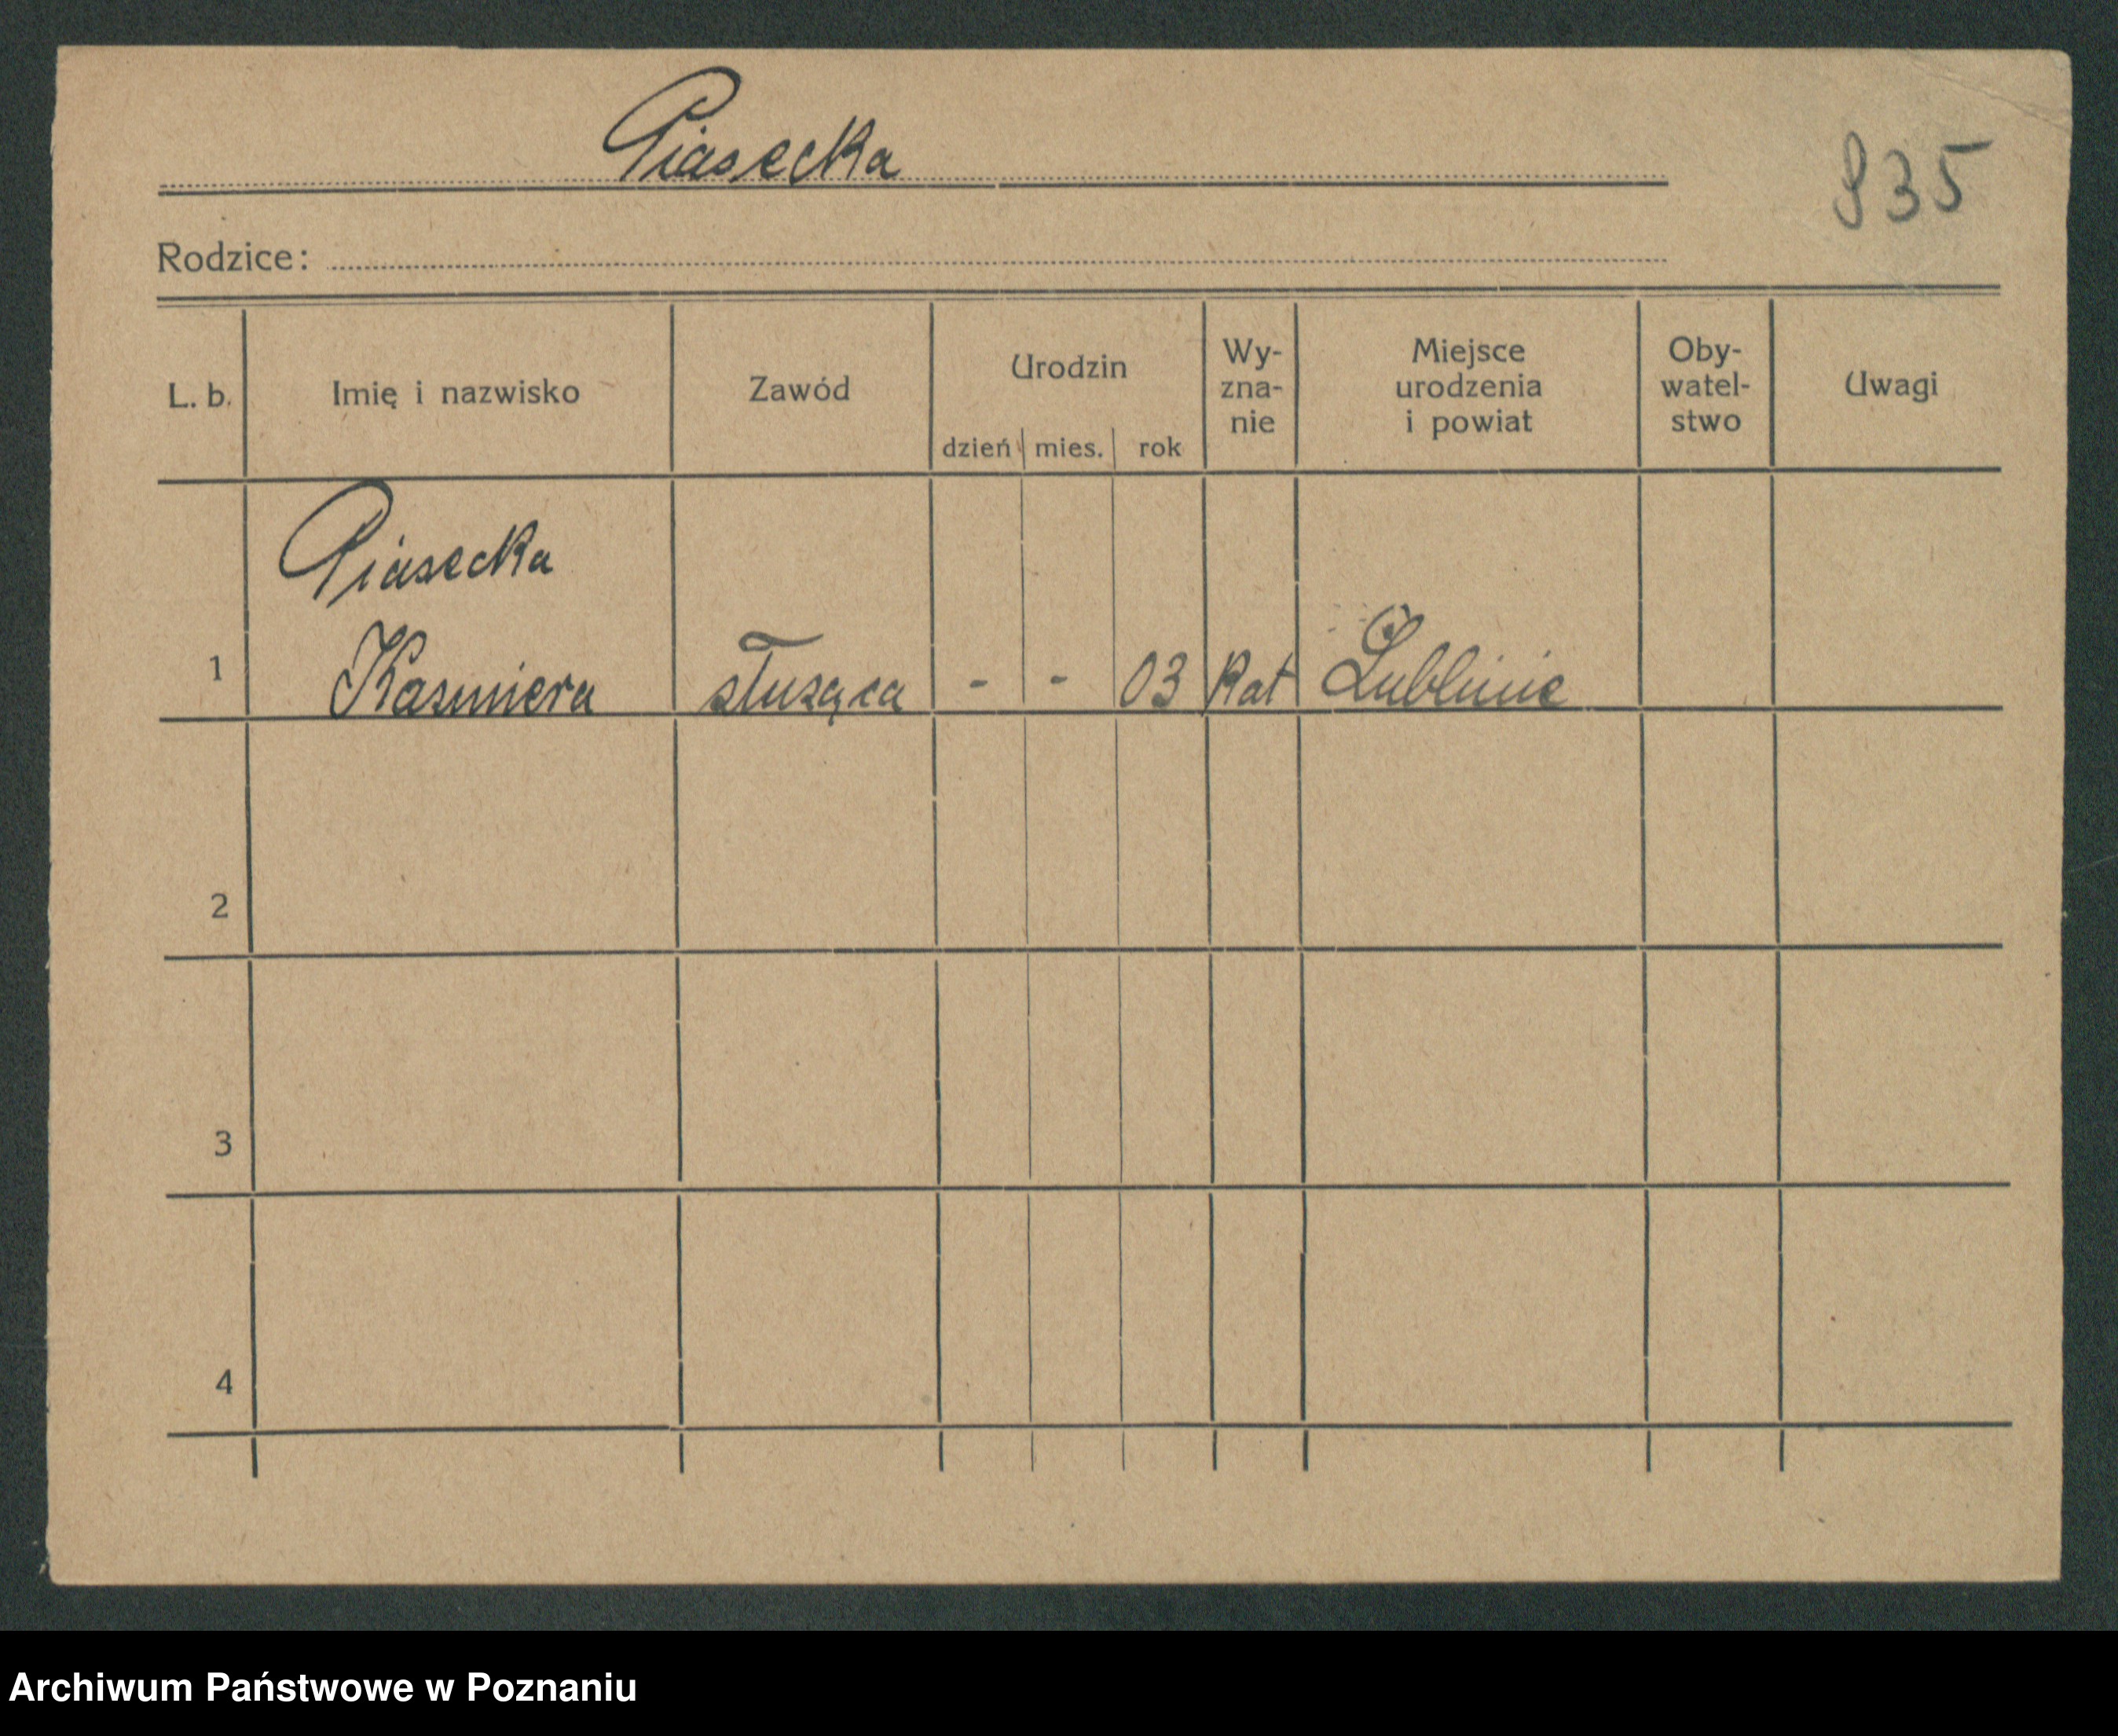 Piasecka
935
Rodzice:
L. b. Imię i nazwisko Zawód Urodzin dzień mies. rok Wy-zna-nie Miejsce urodzenia i powiat Oby-watel-stwo Uwagi
Piasecka
1 Kasmiera słusąca - - 03 kat Lublinie
2
3
4
Archiwum Państwowe w Poznaniu